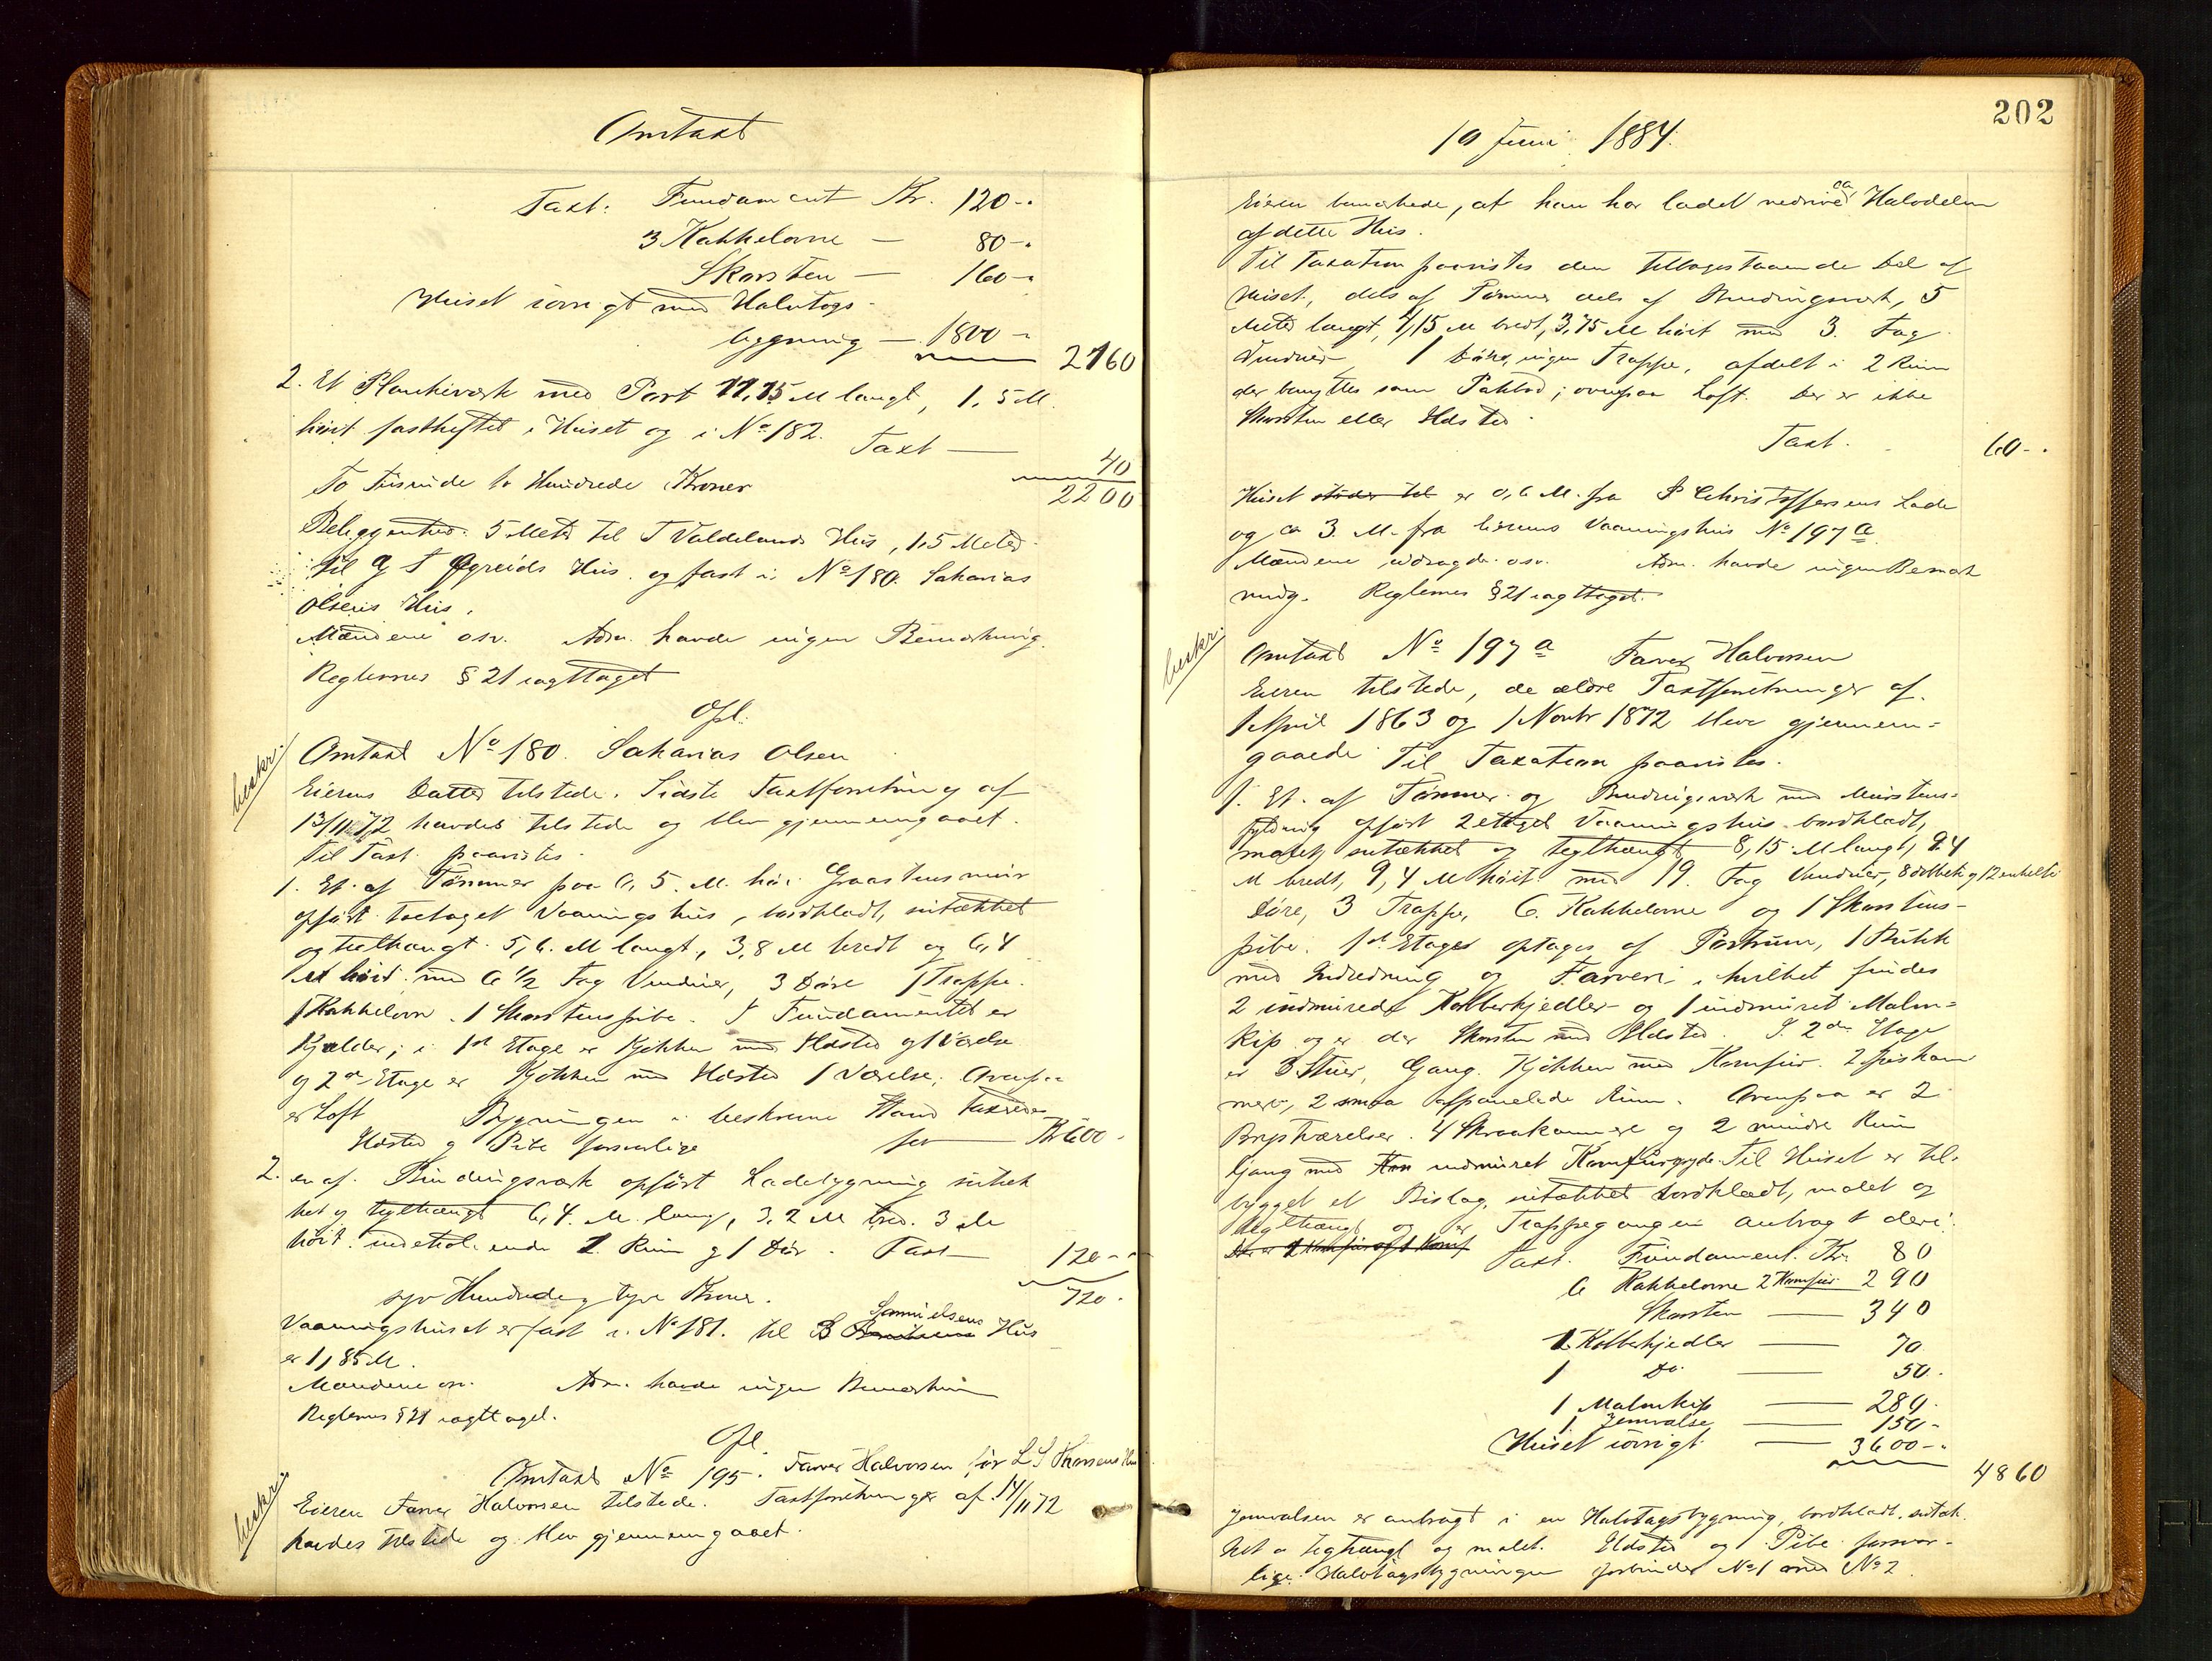 Omtaxt
Taxt: Fundament Kr. 120-"
3 Kakkelovne — 80-"
Skorsten — 160-"
Huset iøvrigt med Halvtags-
bygning — 1800-
2160
2. Et Plankeværk med Port 11,75 M langt, 1,5 M.
høit fastheftet i Huset og i No 182.
Taxt — 40
To tusinde to Hundrede Kroner 2200
Beliggenhed: 5 Meter til T Valdelands Hus, 1,5 Meter
til G T Øgreids Hus og fast i No 180. Saharias
Olsens Hus.
Mændene osv. Adm. havde ingen Bemærkning.
Reglernes § 21 iagttaget
Opl.
beskr.
Omtaxt No 180. Saharias Olsen
Eierens Datter tilstede. Sidste Taxtforretning af
13/11 72 havdes tilstede og blev gjennemgaaet.
Til Taxt paavistes.
1. Et af Tømmer paa 0,5 M. høi Graastensmur
opført toetaget Vaaningshus, bordklædt, sutækket
og teglhængt 5,6 M langt, 3,8 M bredt og 6,4
M høit med 6 1/2 Fag Vinduer, 3 Døre 1 Trappe.
1 Kakkelovn. 1 Skorstenspibe. I Fundamentet er
Kjælder; i 1st Etage er Kjøkken med Ildsted og 1 Værelse
og 2den Etage er Kjøkken med Ildsted 1 Værelse; Ovenpaa
er Loft Bygningen i beskrevne Stand taxeredes
Ildsted og Pibe forsvarlige for — Kr 600-
2. en af Bindingsværk opført Ladebygning sutæk
ket og teglhængt 6,4 M. lang, 3,2 M bred 3 M
høit indeholdende 1 Rum og 1 Dør. Taxt 120-"
syv Hundrede og tyve Kroner. 720.
Samuelsens
Vaaningshuset er fast i No 181. til B Hus
er 1,85 M.
Mændene osv. Adm. havde ingen Bemærkning
Reglernes § 21 iagttaget.
Opl.
beskr.
Omtaxt No 195. Farver Halvorsen før L. S Hansens Hus
Eieren Farver Halvorsen tilstede. Taxtforretninger af 14/11 72
havdes tilstede og blev gjennemgaaet.
202
10 Juni 1884.
ca
Eieren bemærkede, at han har ladet nedrive Halvdelen
af dette Hus.
Til Taxation paavistes den tilbagestaaende Del af
Huset, dels af Tømmer dels af Bindingsværk, 5
Meter langt, 4,15 M bredt, 3,75 M høit med 3 Fag
Vinduer, 1 Døre, ingen Trappe, afdelt i 2 Rum
der benyttes som Pakbod; ovenpaa Loft. Der er ikke
Skorsten eller Ildsted.
Taxt. 60-"
Huset støder til er 0,6 M. fra P Christoffersens Lade
og ca 3. M. fra Eierens Vaaningshus No 197 a
Mændene udsagde osv. Adm. havde ingen Bemærk
ning. Reglernes § 21 iagttaget.
beskr.
Omtaxt No 197 a Farver Halvorsen
Eieren tilstede, de ældre Taxtforretninger af
1 April 1863 og 1 Novbr 1872 bleve gjennem=
gaaede Til Taxation paavistes.
1. Et af Tømmer og Bindingsværk med Murstens-
fyldning opført 2 etaget Vaaningshus bordklædt,
malet, sutækket og teglhængt 8,15 M langt, 9.4
M bredt, 9,4 M høit med 19 Fag Vinduer, 8 dobbelt og 12 enkelte
Døre, 3 Trapper, 6 Kakkelovne og 1 Skorstens-
pibe. 1st Etage optages af Portrum, 1 Butik
med Indredning og Farveri, hvilket findes
2 indmurede Kobberkjedler og 1 indmuret Malm=
kip og er der Skorsten med Ildsted. I 2den Etage
er 3 Stuer, Gang, Kjøkken med Komfur. 2 Spiskam
mere, 2 smaa afpanelede Rum. Ovenpaa er 2
Brystværelser. 4 Skraakammere og 2 mindre Rum
Gang med indmuret Komfurgryde. Til Huset er til-
bygget et Bislag, sutækket bordklædt, malet og
teglhængt og er Trappegangen anbragt deri.
Taxt. Fundament. Kr. 80
6 Kakkelovne 2 Komfur 290
Skorsten — 340
1 Kobberkjedler — 70
1 Do — 50.
1 Malmkip — 280.
1 Jernvalse — 150-
Huset iøvrigt — 3600-"
4860
Jernvalsen er anbragt i en Halvtagsbygning, bordklædt, sutæk
ket og teghængt og malet. Ildsted og Pibe forsvar-
lige. Halvtagsbygningen forbinder No 1 med No 2.